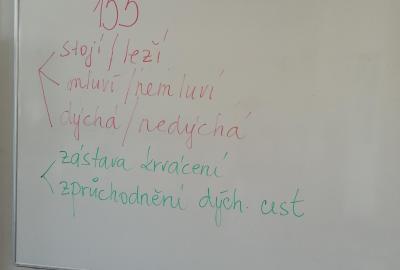 155
stojí/leží
mluví/nemluví
dýchá/nedýchá
zástava krvácení
zprůchodnění dých. cest